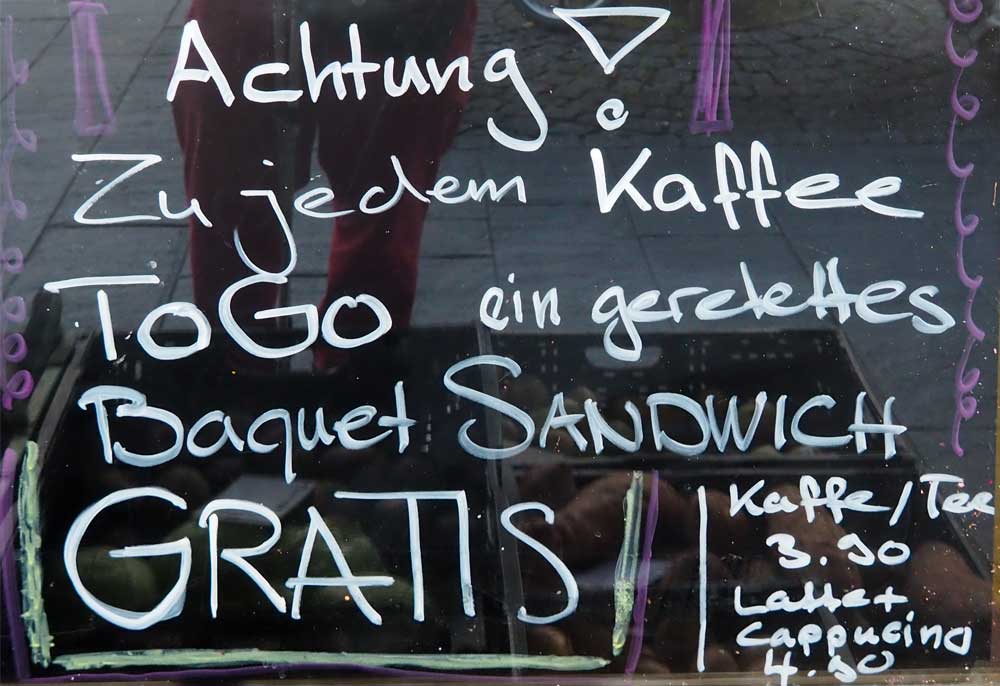 Achtung!
Zu jedem Kaffee
ToGo ein gerettetes
Baquet SANDWICH
GRATIS
Kaffe/Tee
3.90
Latte+
Cappucino
4.90